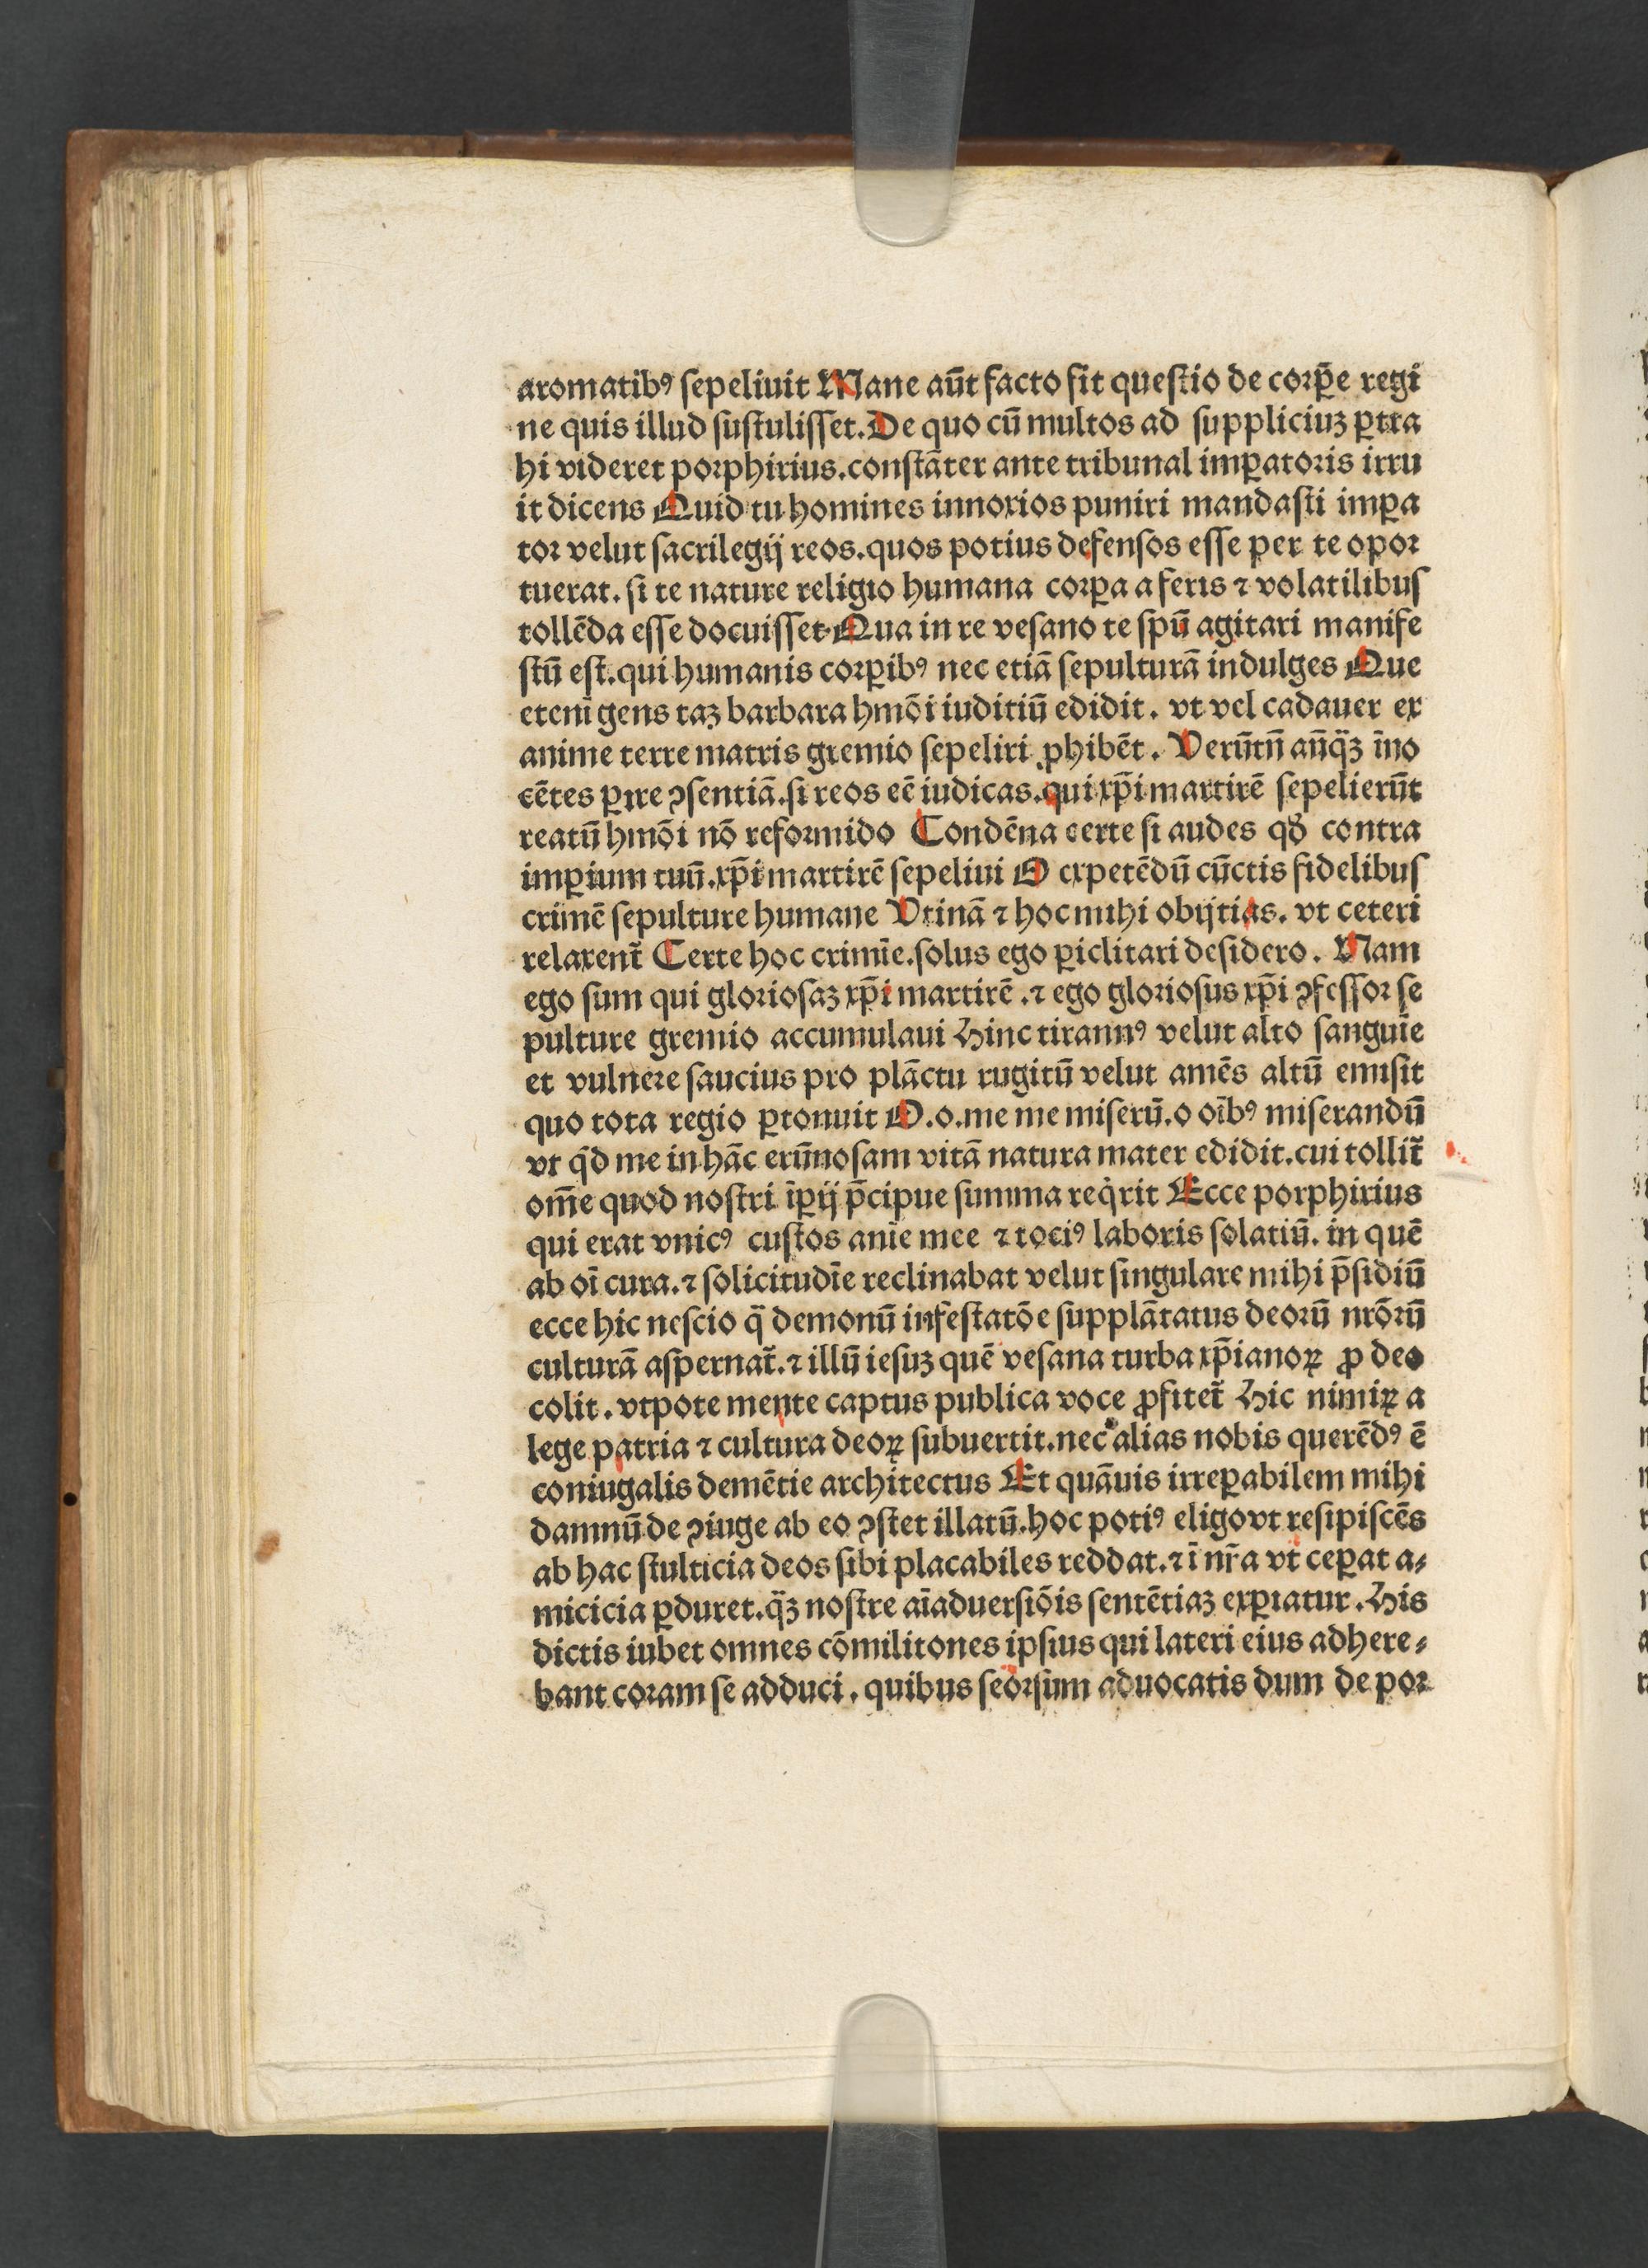 aromatibꝰ ſepeliuit Mane aūt facto fit queſtio de corꝑe regi
ne quis illud ſuſtuliſſet. De quo cū multos ad ſuppliciuꝫ ꝑtra
hi videret porphirius. conſtāter ante tribunal imꝑatoris irru
it dicens Quid tu homines innoxios puniri mandaſti imꝑa
tor velut ſacrilegij reos. quos potius defenſos eſſe per te opor
tuerat. ſi te nature religio humana corꝑa a feris ⁊ volatilibuſ
tollēda eſſe docuiſſet. Qua in re veſano te ſpū agitari manife
ſtū eſt. qui humanis corꝑibꝰ nec etiā ſepulturā indulges Que
etenī gens taꝫ barbara hmōi iuditiū edidit. vt vel cadauer ex
anime terre matris gremio ſepeliri ꝓhibēt. Verūtn̄ an̄q̄ꝫ īno
cētes ꝑire ꝯſentiā. ſi reos eē iudicas. qui xp̄i martirē ſepelierūt
reatū hmōi nō reformido Condēna certe ſi audes qđ contra
imꝑium tuū. xp̄i martirē ſepeliui O expetēdū cūctis fidelibuſ
crimē ſepulture humane Vtinā ⁊ hoc mihi obijtias. vt ceteri
relaxent̄ Certe hoc crimīe. ſolus ego ꝑiclitari deſidero. Nam
ego ſum qui glorioſaꝫ xp̄i martirē. ⁊ ego glorioſus xp̄i ꝯfeſſor ſe
pulture gremio accumulaui Hinc tirannꝰ velut alto ſanguīe
et vulnere ſaucius pro plāctu rugitū velut amēs altū emiſit
quo tota regio ꝑtonuit O. o. me me miſerū. o oībꝰ miſerandū
vt q̇d me in hāc erūnoſam vitā natura mater edidit. cui tollit̄
om̄e quod noſtri īꝑij p̄cipue ſumma req̇rit Ecce porphirius
qui erat vnicꝰ cuſtos anīe mee ⁊ tociꝰ laboris ſolatiū. in quē
ab oī cura. ⁊ ſolicitudīe reclinabat velut ſingulare mihi p̄ſidiū
ecce hic neſcio q̄ demonū infeſtatōe ſupplātatus deorū nr̄ōrū
culturā aſpernat̄. ⁊ illū ieſuꝫ quē veſana turba xp̄ianoꝝ ꝓ deo
colit. vtpote mente captus publica voce ꝓfitet̄ Hic nimiꝝ a
lege patria ⁊ cultura deoꝝ ſubuertit. nec alias nobis querēdꝰ ē
coniugalis demētie architectus Et quāuis irreꝑabilem mihi
damnū de ꝯiuge ab eo ꝯſtet illatū. hoc potiꝰ eligo vt reſipiſcēs
ab hac ſtulticia deos ſibi placabiles reddat. ⁊ ī nr̄a vt ceꝑat a⸗
micicia ꝑduret. q̄ꝫ noſtre aīaduerſiōis ſentētiaꝫ exꝑiatur. His
dictis iubet omnes cōmilitones ipſius qui lateri eius adhere⸗
bant coram ſe adduci. quibus ſeorſum aduocatis dum de por